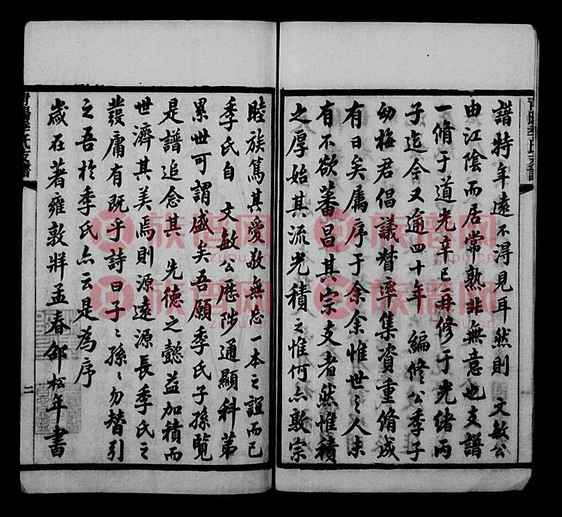 譜特年遠不得見耳然則　文敏公
由江陰而居常熟非無意也支譜
一脩于道光辛巳再修于光緒丙
子迄今又逾四十年　編修公季子
幼梅君倡議督率集資重脩成
有日矣屬序于余余惟世之人未
有不欲蕃昌其宗支者然惟積
之厚始其流光積之惟何亦敦宗
睦族篤其愛敬無忘一本之誼而已
季氏自　文敏公歷陟通顯科第
累世可謂盛矣吾願季氏子孫覽
是譜追念其　先德之懿益加積而
世濟其美焉則源遠源長季氏之
發庸有既乎詩曰子子孫孫勿替引
之吾於季氏亦云是為序
歲在著雍敦牂孟春邵松年書
二
族譜网